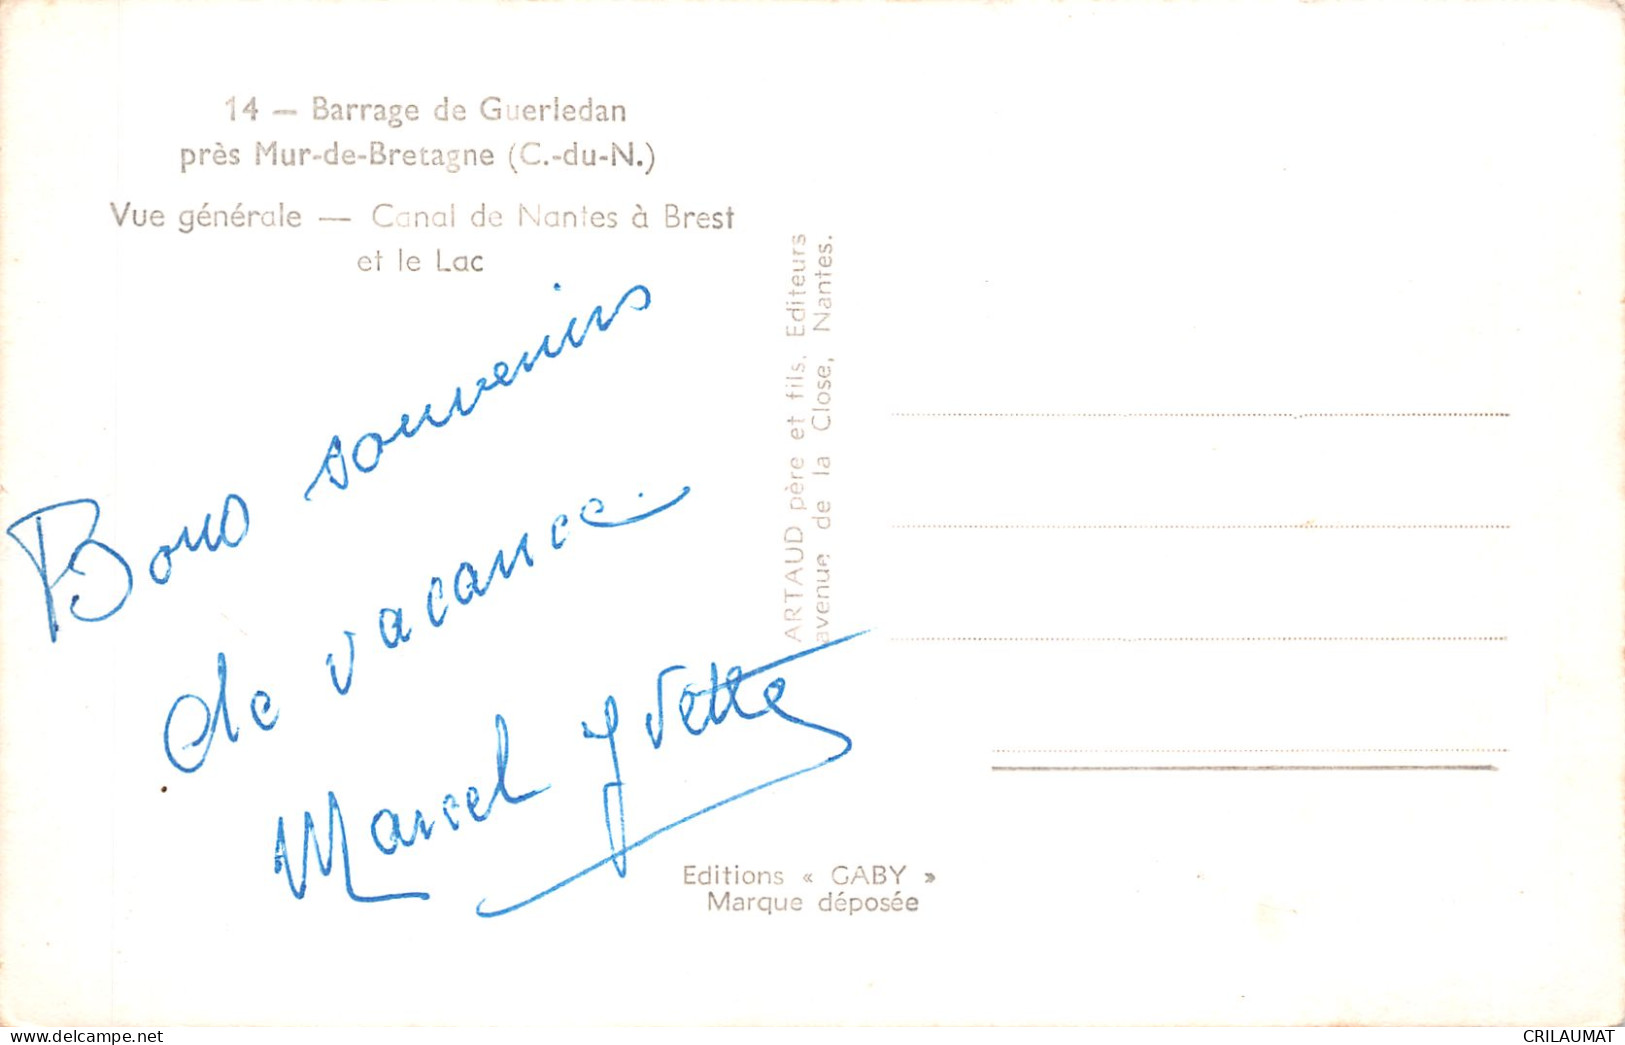 14 — Barrage de Guerledan
près Mur-de-Bretagne (C.-du-N.)
Vue générale — Canal de Nantes à Brest
et le Lac
Bons souvenirs
de vacance
Marcel Yvette
ARTAUD père et fils. Editeurs
avenue de la Close, Nantes.
Editions « GABY »
Marque déposée
delcampe.net
CRILAUMAT